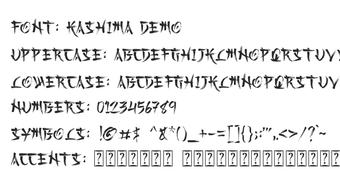 FONT: KASHIMA DEMO
UPPERCASE: ABCDEFGHIJKLMNOPQRSTUV
LOWERCASE: ABCDEFGHIJKLMNOPQRSTUV
NUMBERS: 0123456789
SYMBOLS: !@#$ ^&*()_+-=[]{};:'",.<>/?`~
ACCENTS: